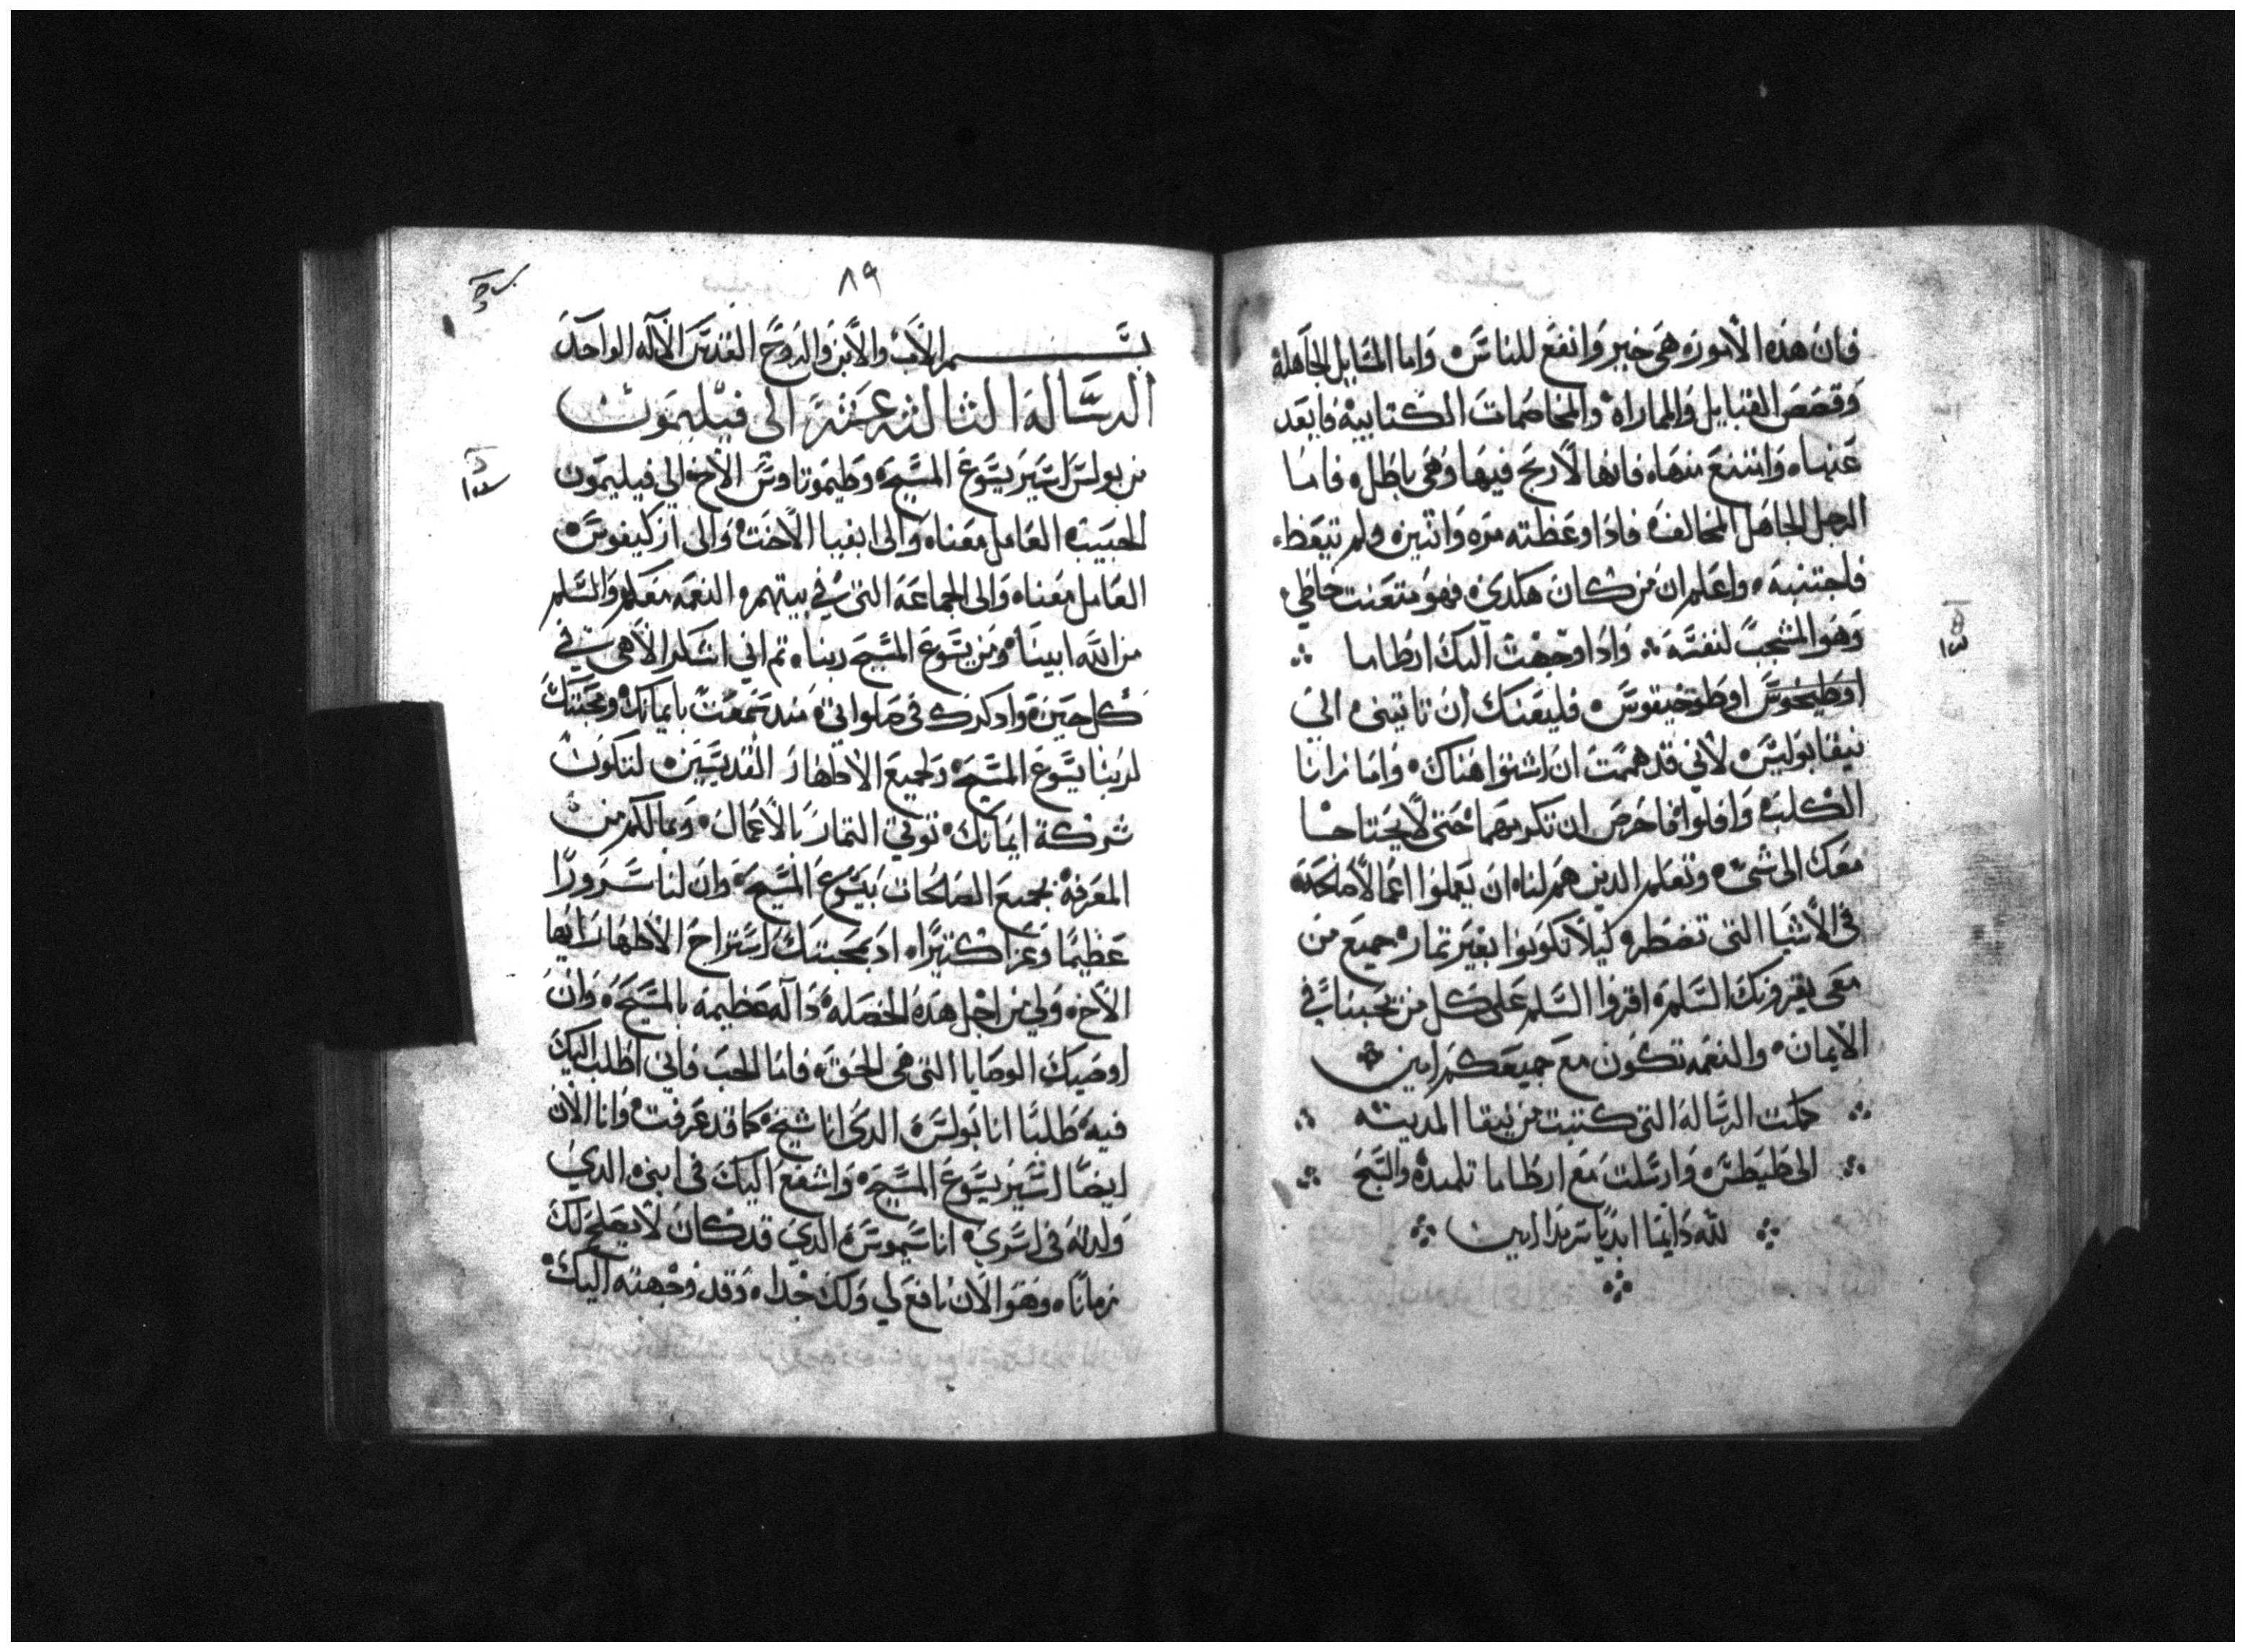 فان هذه الامور هي خير وانفع للناس واما المسايل الجاهله
وقصص القبايل والمماراه والمخاصمات الكتابيه فابعد
عنها وامتنع منها فانها لا ربح فيها وهي باطل فاما
الرجل الجاهل المخالف فاذا وعظته مره واتنين ولم تيعظ
فاجتنبه واعلم ان من كان هكدي فهو متعنت خاطي
وهو المشجب لنفسه واذا وجهت اليك ارطاما
اوطيخوس اوطوخيقوس فليعنك ان تاتيني الي
نيقابوليس لاني قد هممت ان اشتوا هناك واما زانا
الكلب وافلوا فاحرص ان تكرمهما حتي لا يحتاجا
معك الى شي وتعلم الدين هم لنا ان يعملوا اعمالا صالحه
في الاشيا التي تضطر كيلا يكونوا بغير تمار جميع من
معي يقرونك السلم اقروا السلم على كل من يحبنا في
الايمان والنعمه تكون مع جميعكم امين
كملت الرساله التي كتبت من نيقا المدينه
الى طيطس وارسلت مع ارطاما تلميده والسبح
لله دايما ابديا سرمدا امين
٨٩
بسم الاب والابن والروح القدس الاله الواحد
الرساله التالته عشره الي فيليمون
من بولس اسير يسوع المسيح وطيموتاوس الاخ الي فيليمون
الحبيب العامل معنا والى ابفيا الاخت والى ارکيفوس
العامل معنا والى الجماعه التي في بيتهم النعمه معكم والسلم
من الله ابينا ومن يسوع المسيح ربنا تم اني اشكر الاهي في
كل حين وادكرك في صلواتي مند سمعت بايمانك ومحبتك
لربنا يسوع المسيح ولجميع الاطهار القديسين لتكون
شركة ايمانك توتي التمار بالاعمال وبمالكم من
المعرفة بجميع الصالحات بيسوع المسيح وان لنا سرورا
عظيما وعزا كتيرا اد بمحبتك استراح الاطهار ايها
الاخ ولي من اجل هده الخصله داله عظيمه بالمسيح وان
اوصيك الوصايا التي هي الحق فاما الحب فاني اطلب اليك
فيه طلبا انا بولس الدي انا شيخ كما قد عرفت وانا الان
ايضا اسير يسوع المسيح واشفع اليك في ابني الدي
ولدته في اسري اناسيموس الدي قد كان لا يصلح لك
زمانا وهو الان نافع لي ولك جدا وقد وجهته اليك